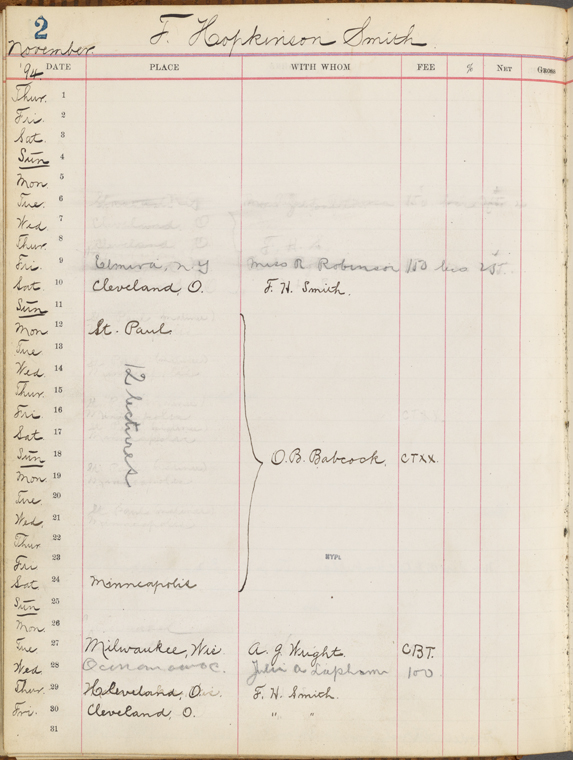 2
F. Hopkinson Smith
November
'94 DATE PLACE WITH WHOM FEE % NET GROSS
Thur. 1
Fri. 2
Sat. 3
Sun 4
Mon. 5
Tue. 6
Wed 7
Thur. 8
Fri. 9 Elmira, N.Y Miss R Robinson 150 less 25
Sat. 10 Cleveland, O. F. H. Smith.
Sun 11
Mon 12 St. Paul
Tue 13
Wed. 14
Thur. 15
12 lectures
Fri 16
Sat 17
Sun 18 O. B. Babcock, CTXX.
Mon. 19
Tue 20
Wed. 21
Thur 22
Fri 23
Sat 24 Minneapolis
Sun 25
Mon 26
Tue 27 Milwaukee, Wis A. G Wright. CBT.
Wed 28 Oconomowoc. Julia A Lapham 100
Thur. 29 Cleveland, O. F. H. Smith.
Fri. 30 Cleveland, O. " "
31